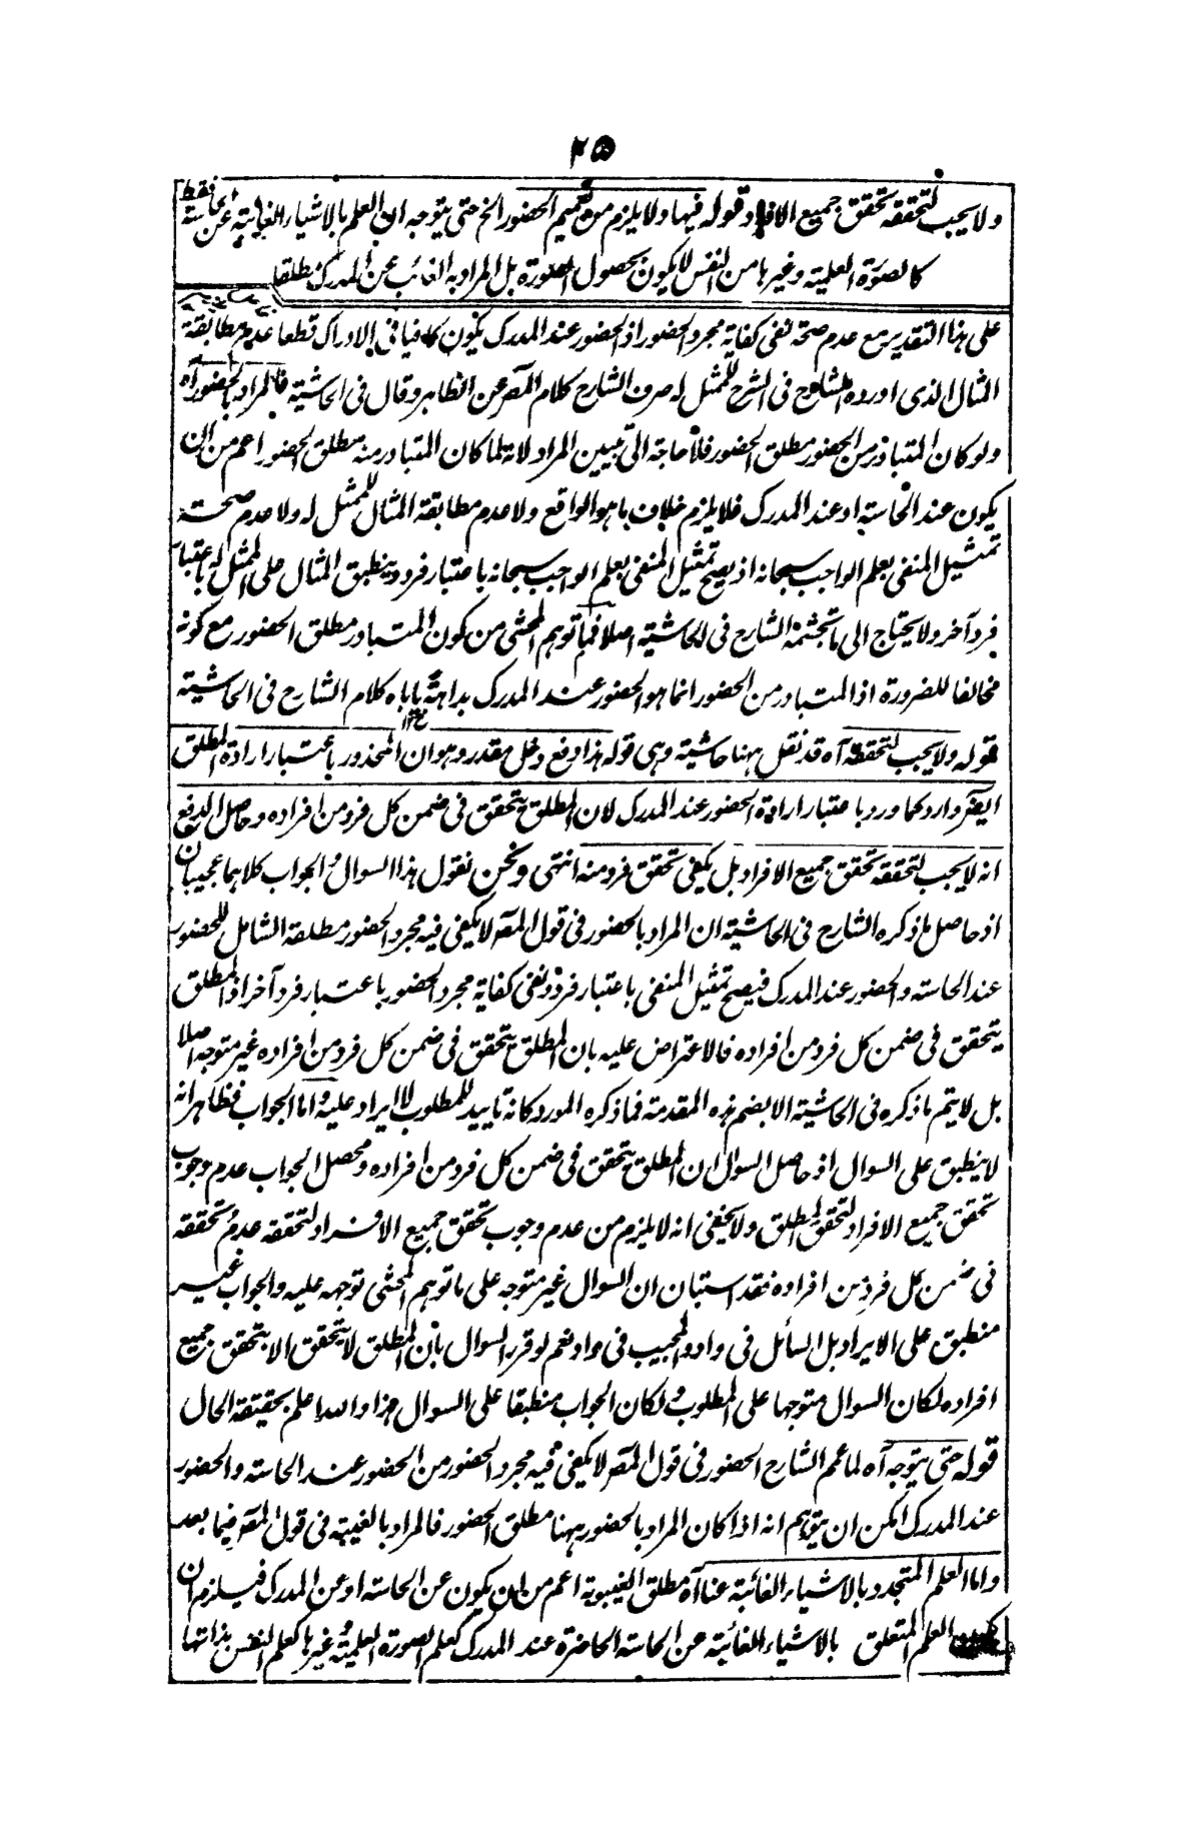 ٢٥
ولا يجب لتحققه تحقق جميع الافراد وقوله فيها ولا يلزم من تعميم الحضور الخ حتى يتوجه ان العلم بالاشياء الغائبة عن الحاسة فقط
كالصورة العلمية وغيرها من النفس لا يكون بحصول الصورة بل المراد به الغائب عن المدرك مطلقا
على هذا التقدير مع عدم صحة نفى كفاية مجرد الحضور اذ الحضور عند المدرك يكون كافيا فى الادراك قطعا عدم مطابقة
المثال الذى اورده الشارح فى الشرح للممثل له صرف الشارح كلام المصـ عن الظاهر وقال فى الحاشية فالمراد بالحضور آه
ولو كان المتبادر من الحضور مطلق الحضور فلا حاجة الى تبيين المراد لانه لما كان المتبادر منه مطلق الحضور اعم من ان
يكون عند الحاسة او عند المدرك فلا يلزم خلاف ما هو الواقع ولا عدم مطابقة المثال للممثل له ولا عدم صحة
تمثيل المنفى بعلم الواجب سبحانه اذ يصح تمثيل المنفى بعلم الواجب سبحانه باعتبار فرد وينطبق المثال على الممثل له باعتبار
فرد آخر ولا يحتاج الى ما تجشمه الشارح فى الحاشية اصلا فما توهم المحشى من كون المتبادر مطلق الحضور مع كونه
مخالفا للضرورة اذ المتبادر من الحضور انما هو الحضور عند المدرك بداهة ياباه كلام الشارح فى الحاشية
قوله ولا يجب لتحققه آه قد نقل ههنا حاشية وهى قوله هذا دفع دخل مقدر وهو ان المحذور باعتبار ارادة المطلق
ايضا وارد كما ورد باعتبار ارادة الحضور عند المدرك لان المطلق يتحقق فى ضمن كل فرد من افراده وحاصل الدفع
انه لا يجب لتحققه تحقق جميع الافراد بل يكفى تحقق فرد منه انتهى ونحن نقول هذا السوال والجواب كلاهما عجيبان
اذ حاصل ما ذكره الشارح فى الحاشية ان المراد بالحضور فى قول المصـ لا يكفى فيه مجرد الحضور مطلقه الشامل للحضور
عند الحاسة والحضور عند المدرك فيصح تمثيل المنفى باعتبار فرد ونفى كفاية مجرد الحضور باعتبار فرد آخر اذ المطلق
يتحقق فى ضمن كل فرد من افراده فالاعتراض عليه بان المطلق يتحقق فى ضمن كل فرد من افراده غير متوجه اصلا
بل لا يتم ما ذكره فى الحاشية الا بضم هذه المقدمة فما ذكره المورد كانه تاييد للمطلوب لا ايراد عليه واما الجواب فظاهر انه
لا ينطبق على السوال اذ حاصل السوال ان المطلق يتحقق فى ضمن كل فرد من افراده ومحصل الجواب عدم وجوب
تحقق جميع الافراد لتحقق المطلق ولا يخفى انه لا يلزم من عدم وجوب تحقق جميع الافراد لتحققه عدم تحققه
فى ضمن كل فرد من افراده فقد استبان ان السوال غير متوجه على ما توهم المحشى توجهه عليه والجواب غير
منطبق على الايراد بل السائل فى واد والمجيب فى واد نعم لو قرر السوال بان المطلق لا يتحقق الا بتحقق جميع
افراده لكان السوال متوجها على المطلوب ولكان الجواب منطبقا على السوال هذا والله اعلم بحقيقة الحال
قوله حتى يتوجه آه لما عمم الشارح الحضور فى قول المصـ لا يكفى فيه مجرد الحضور من الحضور عند الحاسة والحضور
عند المدرك امكن ان يتوهم انه اذا كان المراد بالحضور ههنا مطلق الحضور فالمراد بالغيبة فى قول المصـ فيما بعد
واما العلم المتجدد بالاشياء الغائبة عنا آه مطلق الغيبوبة اعم من ان يكون عن الحاسة او عن المدرك فيلزم ان
العلم المتعلق بالاشياء الغائبة عن الحاسة الحاضرة عند المدرك كعلم الصورة العلمية وغيرها كعلم النفس بذاتها